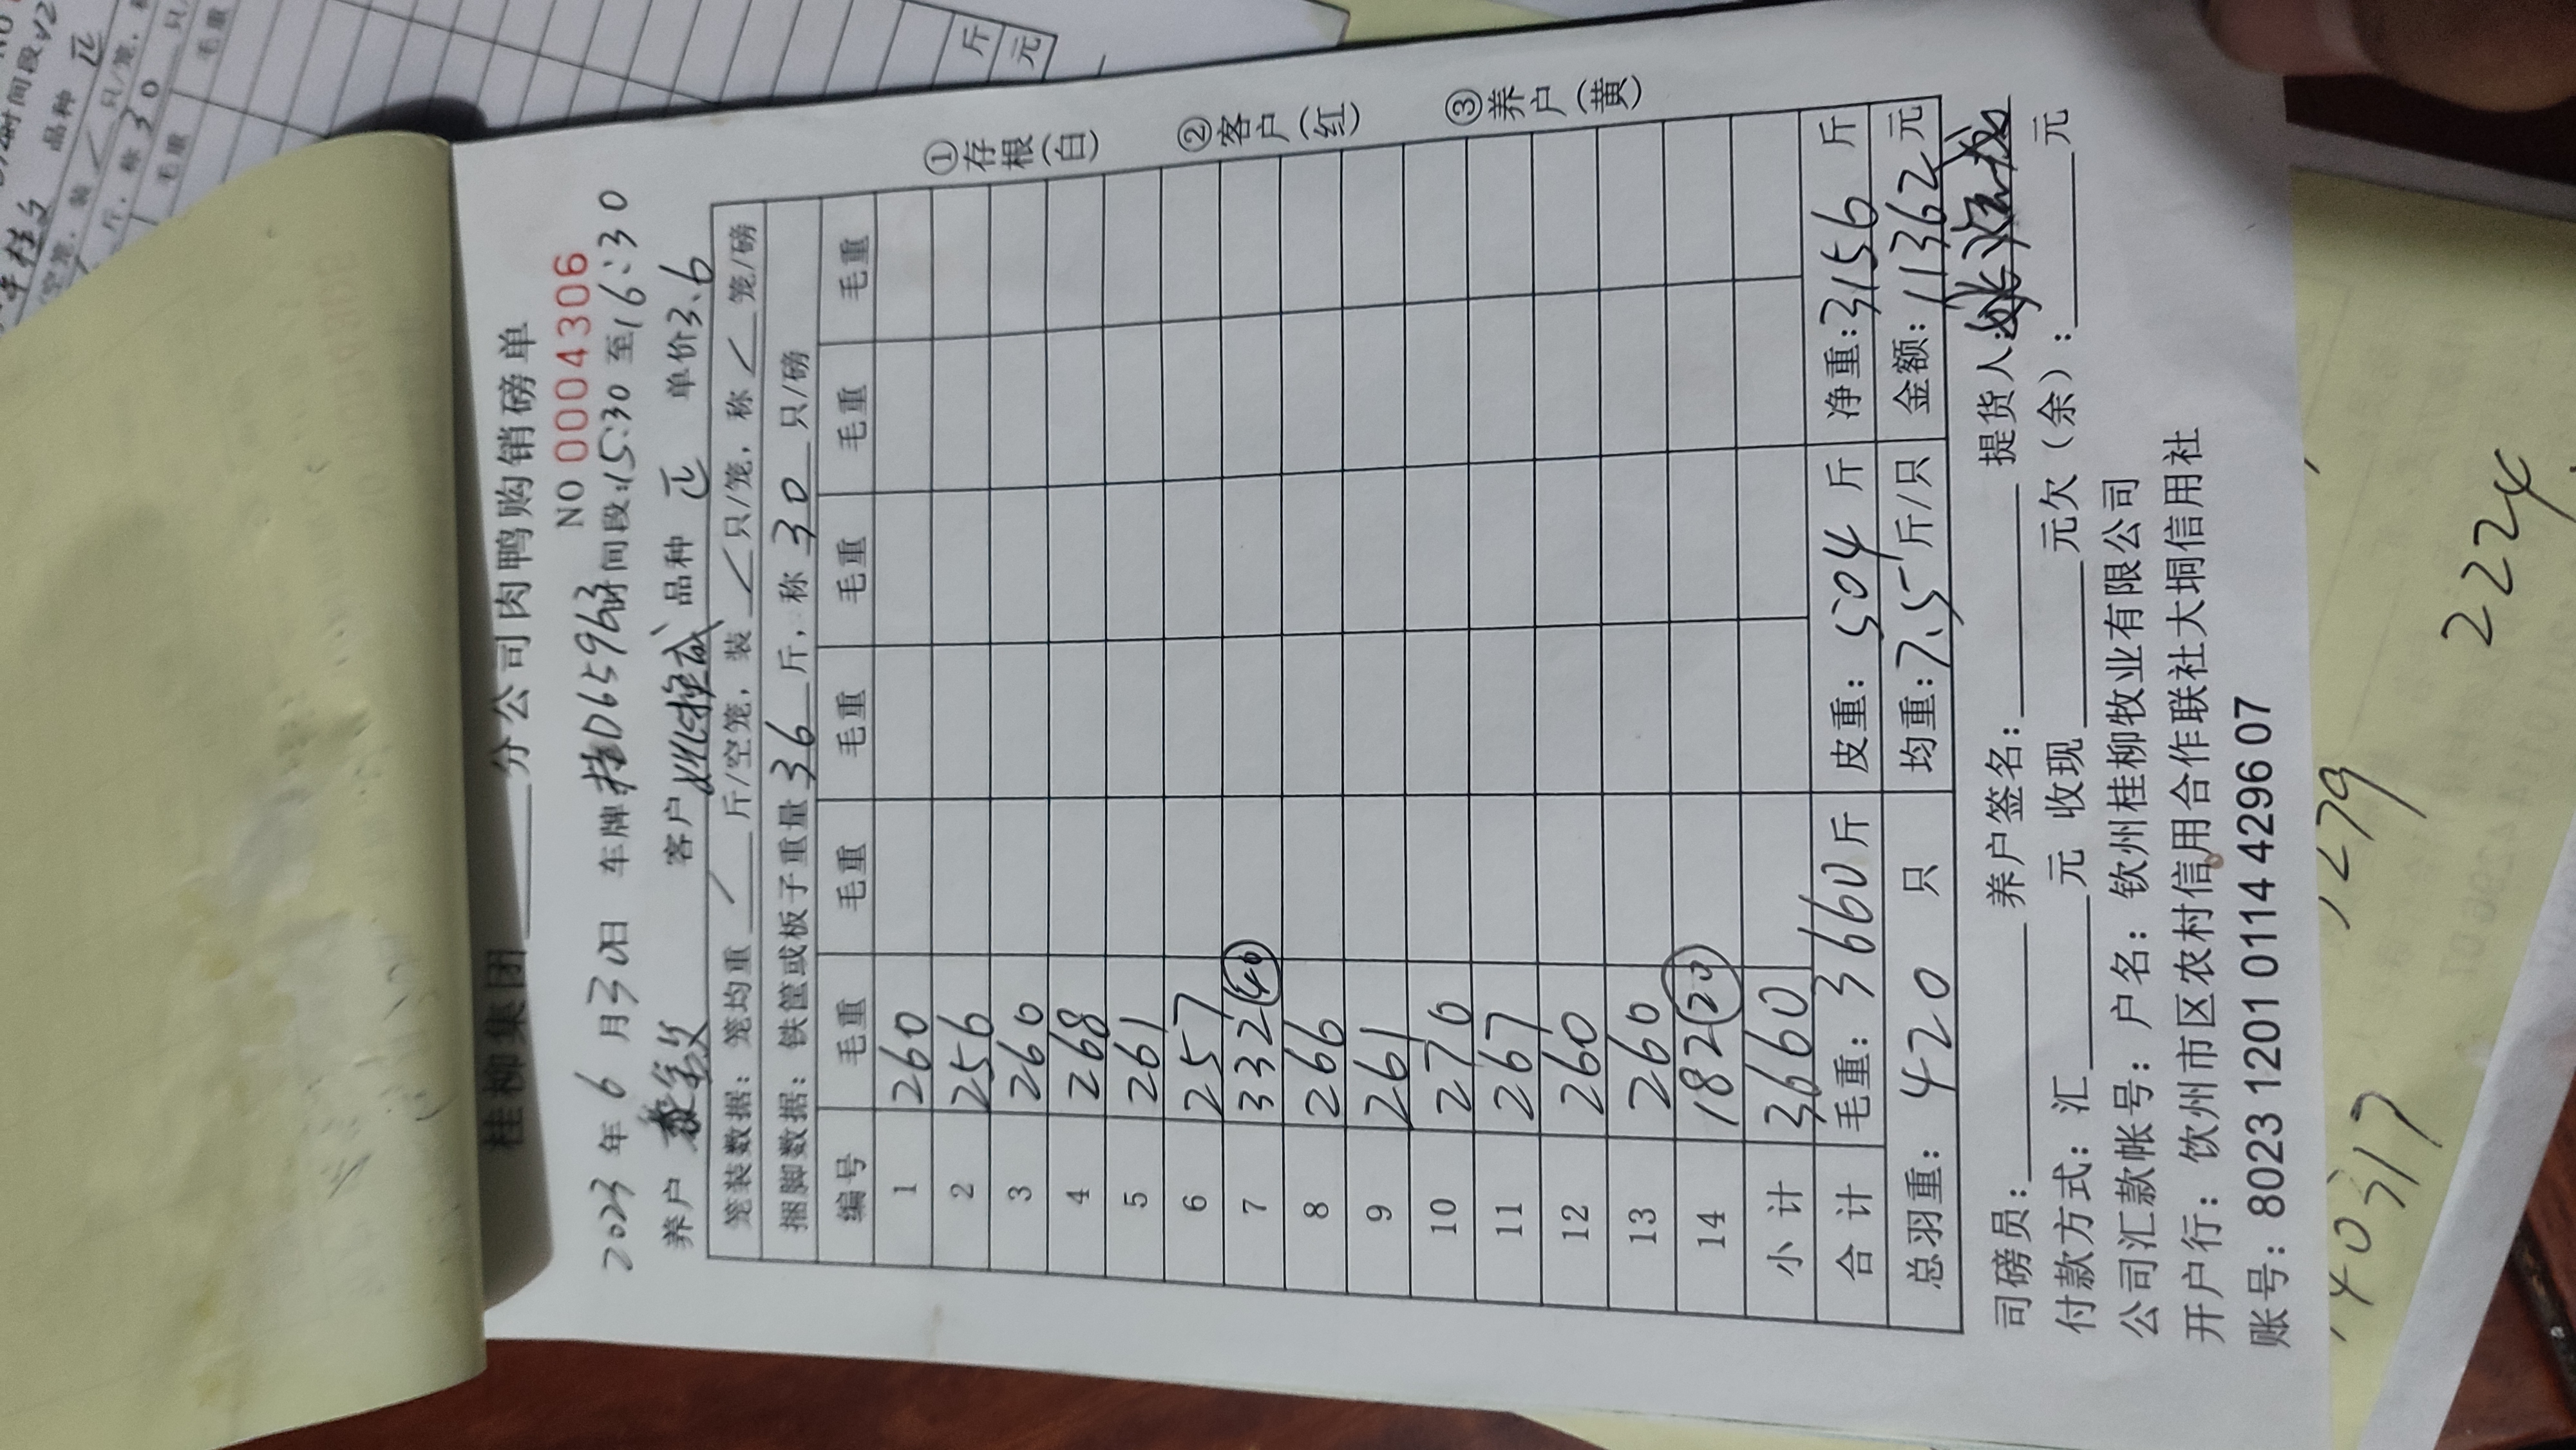 桂柳集团______分公司肉鸭购销磅单
NO 0004306
2023年6月30日 车牌桂D65963时间段:15:30至16:30
养户 客户 品种 正 单价3.6
笼装数据：笼均重 / 斤/空笼，装 / 只/笼，称 / 笼/磅
捆脚数据：铁筐或板子重量 36 斤，称 30 只/磅
编号 毛重 毛重 毛重 毛重 毛重 毛重
1 260
2 256
3 260
4 268
5 261
6 257
7 332 (40)
8 266
9 261
10 270
11 267
12 260
13 260
14 182 (20)
小计 3660
合计 毛重：3660斤 皮重：504斤 净重：3156斤
总羽重：420只 均重：7.5斤/只 金额：11362元
司磅员：______ 养户签名：______ 提货人：
付款方式：汇______元 收现______元欠（余）：______元
公司汇款帐号：户名：钦州桂柳牧业有限公司
开户行：钦州市区农村信用合作联社大垌信用社
账号：8023 1201 0114 4296 07
①存根(白) ②客户(红) ③养户(黄)
斤
元
时间段
品种 正
只/笼，
斤，称30
毛重 毛重
224